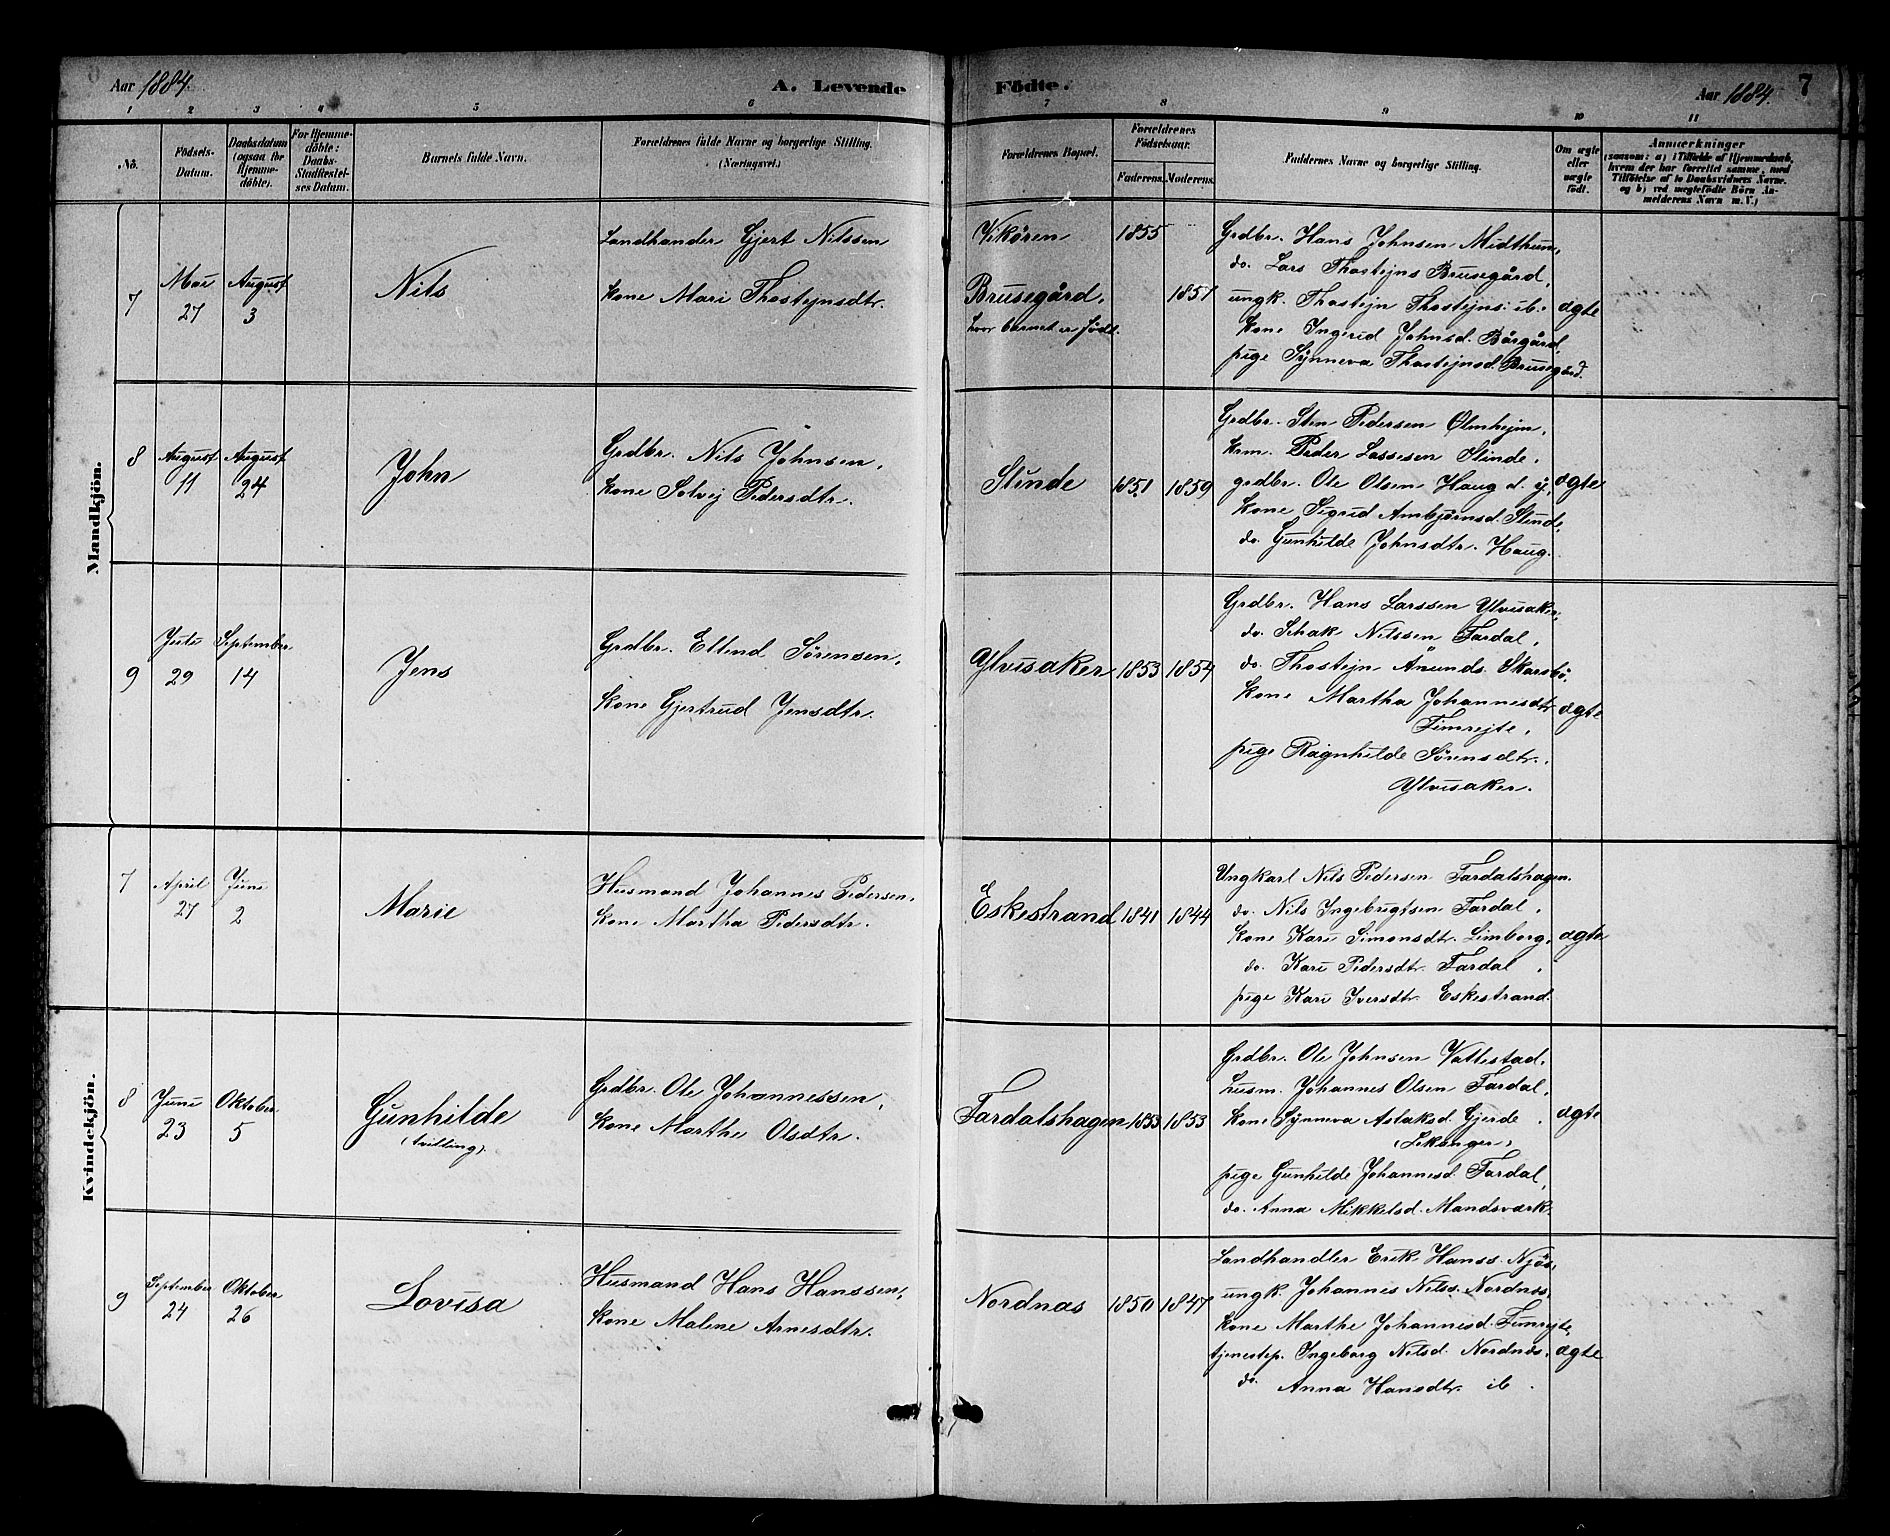 Aar 1884.
A. Levende Födte.
Aar 1884. 7
1 2 3 4 5 6 7 8 9 10 11
No.
Födsels-Datum.
Daabsdatum (ogsaa for Hjemme-döbte).
For Hjemme-döbte: Daabs-Stadfæstel-ses Datum.
Barnets fulde Navn.
Forældrenes fulde Navne og borgerlige Stilling. (Næringsvei.)
Forældrenes Bopæl.
Forældrenes Födselsaar.
Faderens. Moderens.
Faddernes Navne og borgerlige Stilling.
Om ægte eller uægte födt.
Anmærkninger
(saasom: a) i Tilfælde af Hjemmedaab, hvem der har forrettet samme, med Tilföielse af to Daabsvidners Navne, og b) ved uægtefödte Börn An-melderens Navn m. V.)
Mandkjön.
7
Mai 27
August 3
Nils
Landhander Gjert Nilssen
Kone Mari Thostejnsdtr.
Vikören
Brusegård,
hvor barnet er födt.
1855
1851
Grdbr. Hans Johnsen Midthun,
do. Lars Thostejns Brusegård,
ungk. Thostejn Thostejns: ib:
Kone Ingerid Johnsd. Bårgård,
pige Synneva Thostejnsd. Brusegård.
ægte
8
August 11
August 24
John
Grdbr. Nils Johnsen,
Kone Solvej Pedersdtr.
Slinde
1851
1859
Grdbr. Sten Pedersen Ölmhejm,
Krm. Peder Lassesen Slinde,
grdbr. Ole Olsen Haug d. y,
Kone Sigrid Ambjörnsd. Slinde,
do. Gunhilde Johnsdtr. Haug.
ægte
9
Juli 29
September 14
Jens
Grdbr. Ellend Sörensen,
Kone Gjertrud Jensdtr.
Ylvisaker
1853
1854
Grdbr. Hans Larssen Ylvisaker,
do. Schak Nilssen Fardal,
do. Thostejn Ånunds. Skarsbö,
Kone Martha Johannisdtr
Fimrejte,
pige Ragnhilde Sörensdtr.
Ylvisaker.
ægte
Kvindekjön.
7
April 27
Juni 2
Marie
Husmand Johannes Pedersen,
Kone Martha Pedersdtr.
Eskestrand
1841
1844
Ungkarl Nils Pedersen Fardalshagen.
do. Nils Ingebrigtsen Fardal,
Kone Kari Simonsdtr. Limborg,
do. Kari Pedersdtr. Fardal,
pige Kari Iversdtr. Eskestrand.
ægte
8
Juni 23
Oktober 5
Gunhilde
(tvilling).
Grdbr. Ole Johannessen,
Kone Marthe Olsdtr.
Fardalshagen
1853
1853
Grdbr. Ole Johnsen Vallestad,
husm. Johannes Olsen Fardal,
Kone Synneva Aslaksd. Gjerde,
(Lekanger)
pige Gunhilde Johannesd. Fardal,
do. Anna Mikkelsd. Mandsværk.
ægte
9
September 24
Oktober 26
Lovisa
Husmand Hans Hanssen,
Kone Malene Arnesdtr.
Nordnæs
1850
1847
Landhandler Erik Hanss. Njös,
ungk. Johannes Nilss. Nordnæs,
Kone Marthe Johannisd. Fimrejte,
tjenestep. Ingeborg Nilsd. Nordnæs,
do. Anna Hansdtr. ib.
ægte